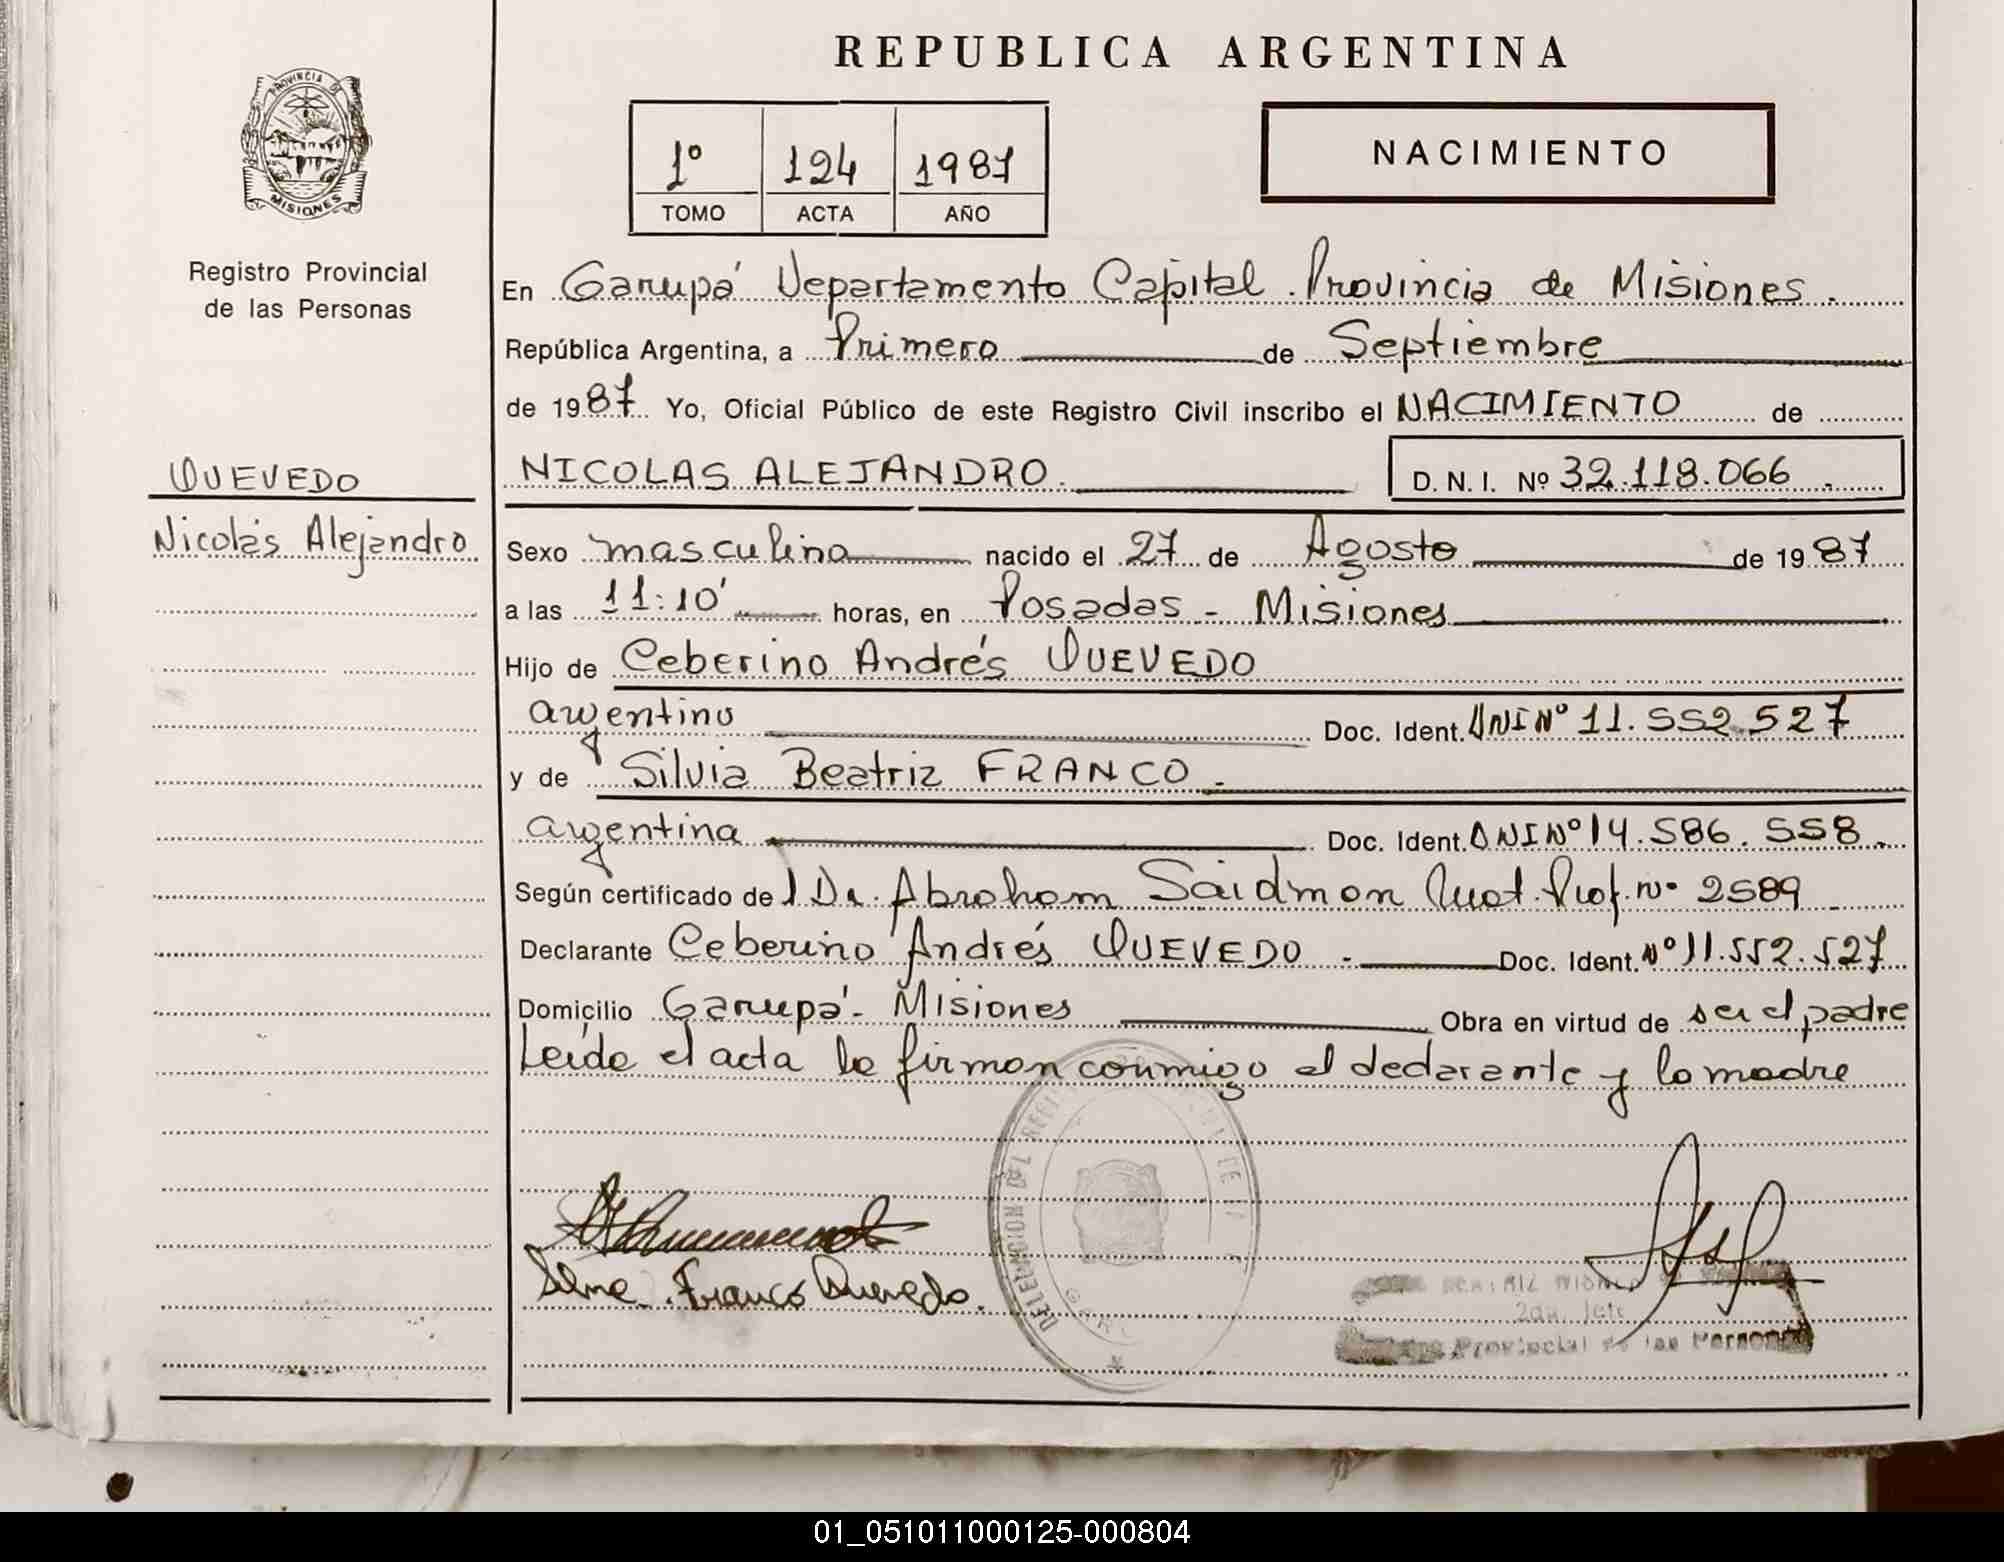 REPUBLICA ARGENTINA
PROVINCIA DE
MISIONES
Registro Provincial
de las Personas
1º 124 1987
TOMO ACTA AÑO
NACIMIENTO
En Garupá Departamento Capital Provincia de Misiones.
República Argentina, a Primero de Septiembre
de 1987 Yo, Oficial Público de este Registro Civil inscribo el NACIMIENTO de
QUEVEDO
NICOLAS ALEJANDRO. D. N. I. Nº 32.118.066
Nicolás Alejandro
Sexo masculino nacido el 27 de Agosto de 1987
a las 11:10' horas, en Posadas - Misiones
Hijo de Ceberino Andrés QUEVEDO
argentino Doc. Ident. DNI Nº 11.552.527
y de Silvia Beatriz FRANCO.
argentina Doc. Ident. DNI Nº 14.586.558
Según certificado de l Dr. Abraham Saidman Mat. Prof. nº 2589
Declarante Ceberino Andrés QUEVEDO - Doc. Ident. Nº 11.552.527
Domicilio Garupá - Misiones Obra en virtud de ser el padre
Leída el acta la firman conmigo el declarante y la madre
DELEGACION DEL
Franco Quevedo.
2da. Jefe
Provincial de las Personas
01_051011000125-000804